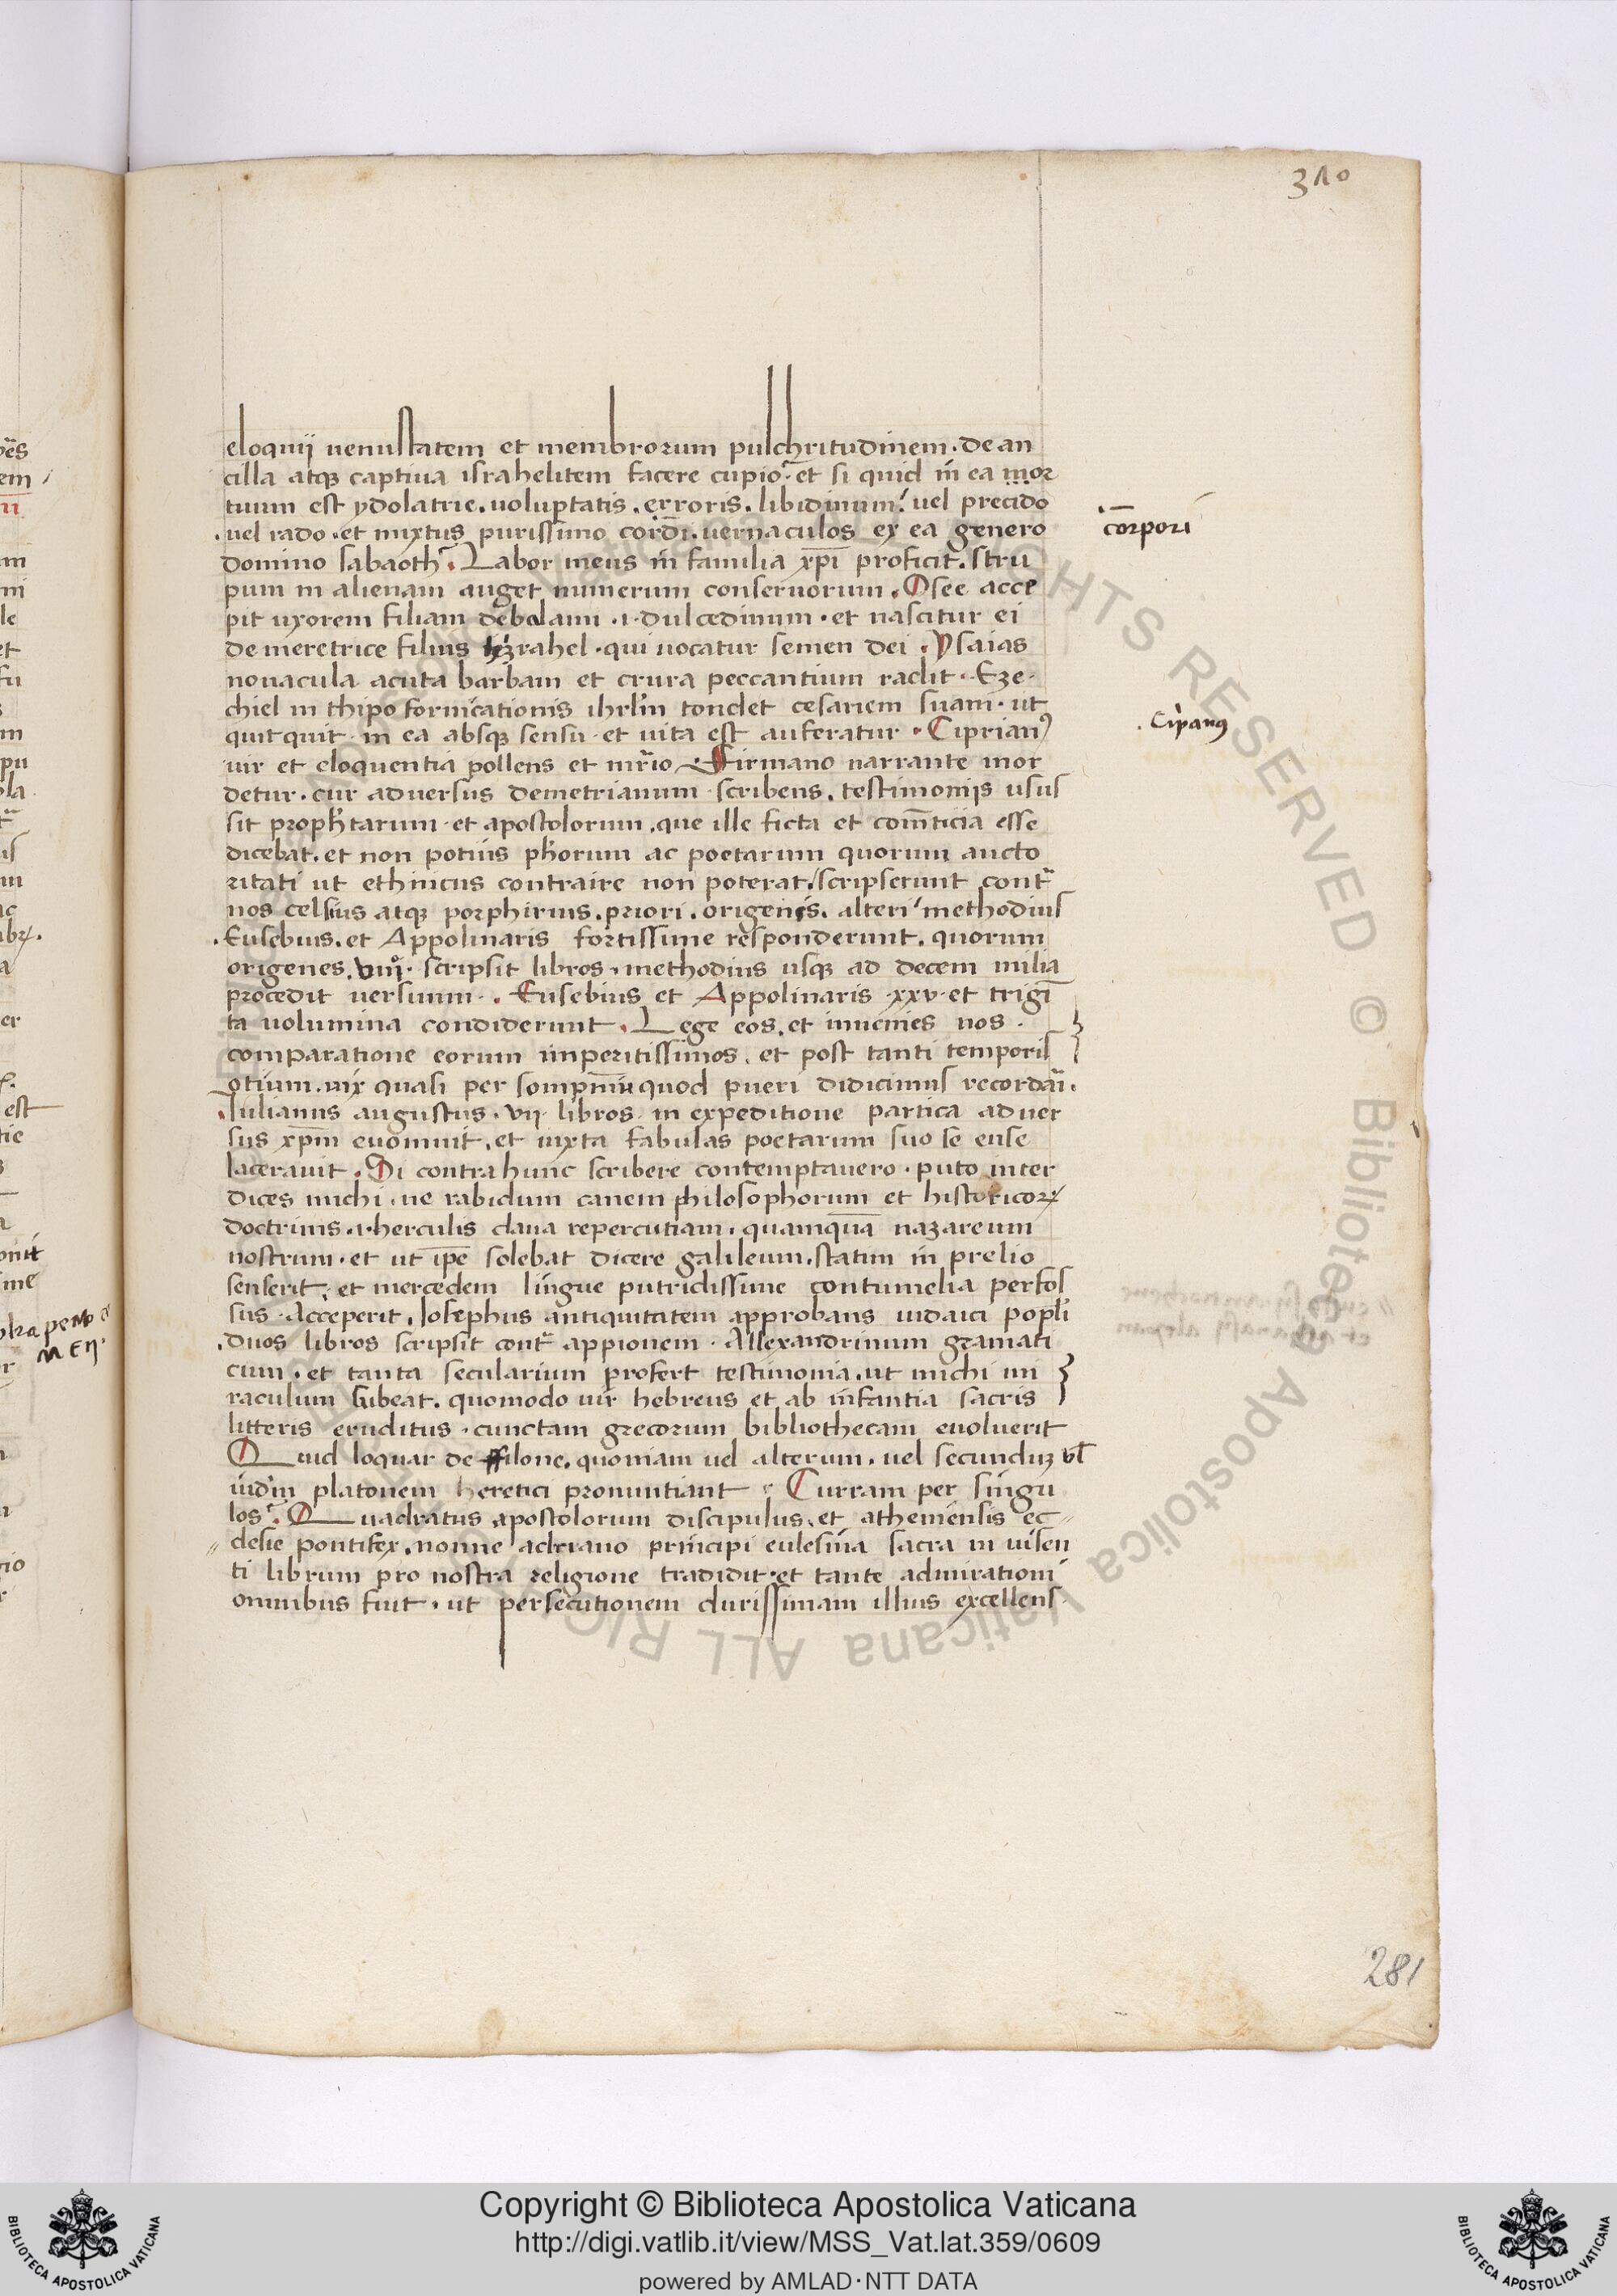 310
eloquij uenustatem et membrorum pulchritudinem. de an
cilla atqꝫ captiua israhelitem facere cupio. et si quid in ea mor
tuum est ydolatrie. uoluptatis. erroris. libidinum. uel precido
uel rado. et mixtus purissimo cordi. uernaculos ex ea genero
corpori
domino sabaoth. Labor meus in familia xp̄i proficit. stru
pum in alienam auget numerum conseruorum. Osee acce
pit uxorem filiam debelaim .i. dulcedinum. et nascitur ei
de meretrice filius hyezrahel. qui uocatur semen dei. Ysaias
nouacula acuta barbam et crura peccantium radit. Eze
chiel in thipo fornicationis ihrl'm tondet cesariem suam. ut
quitquit in ea absqꝫ sensu et uita est auferatur. Ciprianꝰ
Cipanꝰ
uir et eloquentia pollens et mr̄io Firmano narrante mor
detur. cur aduersus demetrianum scribens. testimonijs usus
sit proph'tarum et apostolorum. que ille ficta et com̄ticia esse
dicebat. et non potius ph'orum ac poetarum quorum aucto
ritati ut ethnicus contraire non poterat / scripserunt cont̃
nos celsus atqꝫ porphirius. priori. origenes. alteri methodius
Eusebius. et Appolinaris fortissime responderunt. quorum
origenes. viii. scripsit libros. methodius usqꝫ ad decem milia
procedit uersuum. Eusebius et Appolinaris xxv. et trigī
ta uolumina condiderunt. Lege eos. et inuenies nos
comparatione eorum imperitissimos. et post tanti temporis
otium. uix quasi per sompnium quod pueri didicimus recordāi.
Iulianus augustus. vij. libros in expeditione partica aduer
sus xp̄m euomuit. et iuxta fabulas poetarum suo se ense
lacerauit. Si contra hunc scribere contemptauero. puto inter
dices michi. ne rabidum canem philosophorum et historicoꝝ
doctrinis .i. herculis claua repercutiam. quamquā nazareum
nostrum. et ut ip̄e solebat dicere galileum. statim in prelio
senserit. et mercedem lingue putridissime contumelia perfos
sus. Acceperit. Iosephus antiquitatem approbans iudaici popl'i
duos libros scripsit cont̃ appionem. Allexandrinum gramati
cum. et tanta secularium profert testimonia. ut michi mi
raculum subeat. quomodo uir hebreus et ab infantia sacris
litteris eruditus. cunctam grecorum bibliothecam euoluerit
Quid loquar de filone. quoniam uel alterum. uel secunduꝫ vl'
iud'm platonem heretici pronuntiant. Curram per singu
los. Quadratus apostolorum discipulus. et atheniensis ec
clesie pontifex. nonne adriano principi eulesina sacra in uisen
ti librum pro nostra religione tradidit. et tante admirationi
omnibus fuit. ut persecutionem durissimam illius excellens
281
Copyright © Biblioteca Apostolica Vaticana
http://digi.vatlib.it/view/MSS_Vat.lat.359/0609
powered by AMLAD·NTT DATA
BIBLIOTECA APOSTOLICA VATICANA
BIBLIOTECA APOSTOLICA VATICANA